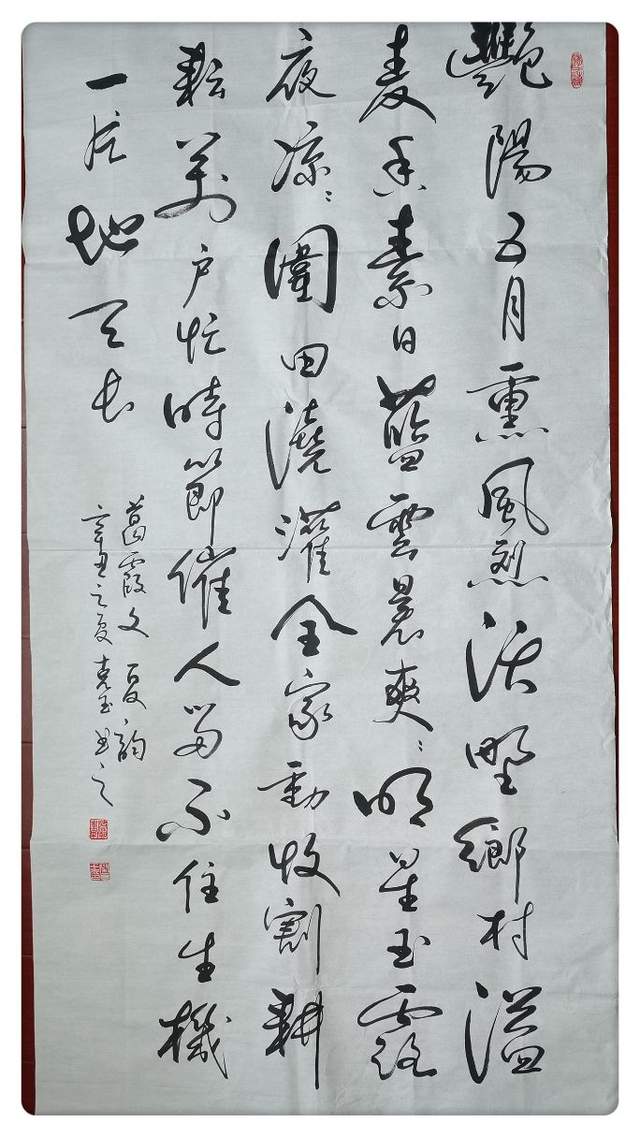 艷陽五月熏風烈沃野鄉村溢
麦香素日藍雲晨爽〻明星玉露
夜凉〻圍田澆灌全家動收割耕
耘萬戶忙時節催人留不住生機
一片地天长
葛霞文夏韵
辛丑之夏克玉书之